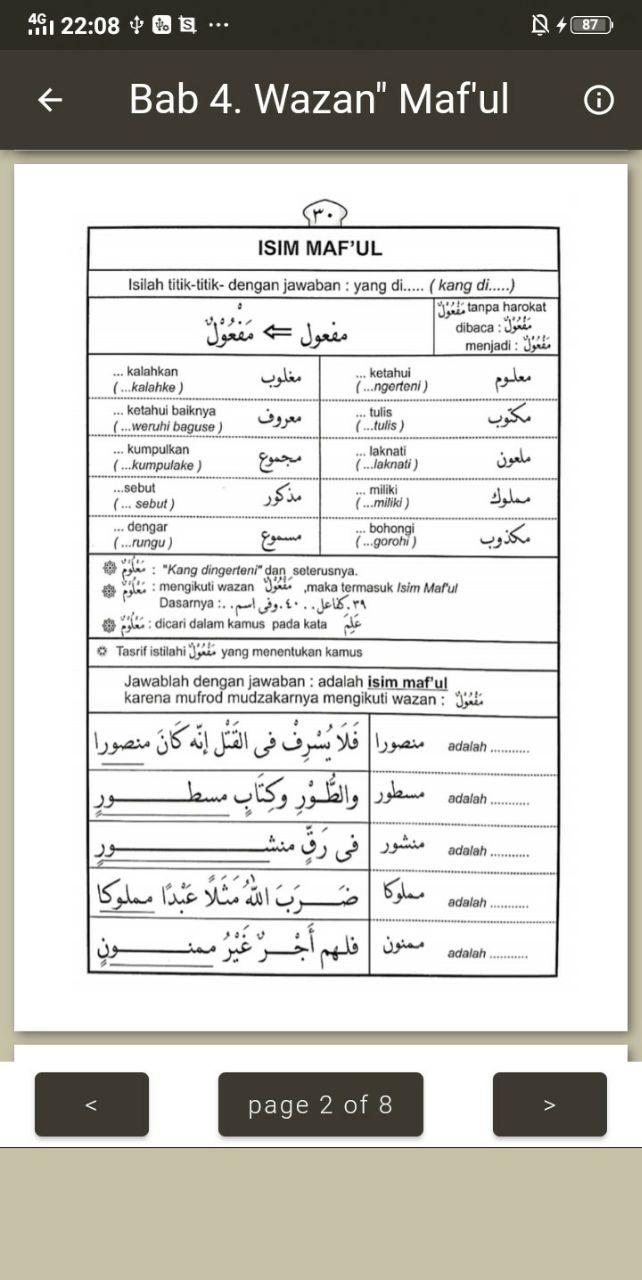 4G 22:08 ... 87
Bab 4. Wazan" Maf'ul
٣٠
ISIM MAF'UL
Isilah titik-titik- dengan jawaban : yang di..... ( kang di.....)
مفعول ⇐ مَفْعُوْلٌ
مَفْعُوْلٌ tanpa harokat
dibaca : مَفْعُوْلٌ
menjadi : مَفْعُوْلٌ
... kalahkan مغلوب ... ketahui معلوم
( ...kalahke ) ( ...ngerteni )
... ketahui baiknya معروف ... tulis مكتوب
( ...weruhi baguse ) ( ...tulis )
... kumpulkan مجموع ... laknati ملعون
( ...kumpulake ) ( ...laknati )
...sebut مذكور ... miliki مملوك
( ... sebut ) ( ...miliki )
... dengar مسموع ... bohongi مكذوب
( ...rungu ) ( ...gorohi )
مَعْلُوْمٌ : "Kang dingerteni" dan seterusnya.
مَعْلُوْمٌ : mengikuti wazan مَفْعُوْلٌ ,maka termasuk Isim Maf'ul
Dasarnya :. ٣٩.كفاعل. . ٤٠.وفى اسم. .
مَعْلُوْمٌ : dicari dalam kamus pada kata عَلِمَ
Tasrif istilahi مَفْعُوْلٌ yang menentukan kamus
Jawablah dengan jawaban : adalah isim maf'ul
karena mufrod mudzakarnya mengikuti wazan : مَفْعُوْلٌ
فَلَا يُسْرِفْ فى القَتْلِ إنّه كَانَ منصورا منصورا adalah ..........
والطُّـوْرِ وكِتَابٍ مسطـــورٍ مسطور adalah ..........
فى رَقٍّ منشـــورٍ منشور adalah ..........
ضَـــرَبَ اللّٰهُ مَثَلًا عَبْدًا مملوكا مملوكا adalah ..........
فلهم أَجْـــرٌ غَيْرُ ممنـــونٍ ممنون adalah ..........
< page 2 of 8 >